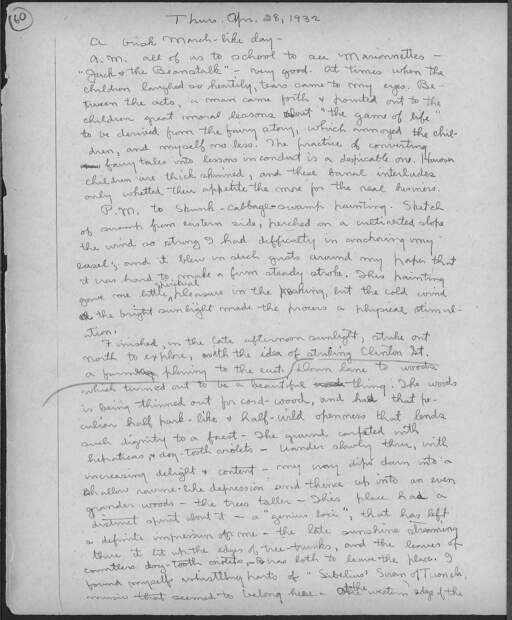 60
Thurs. Apr. 28, 1932
A brisk March-like day -
A.M. all of us to school to see Marionettes -
"Jack & the Beanstalk" - very good. At times when the
children laughed so heartily, tears came to my eyes. Be-
tween the acts, a man came forth & pointed out to the
children great moral lessons about "the game of life"
to be derived from the fairy story, which annoyed the chil-
dren, and myself no less. The practice of converting
fairy tales into lessons in conduct is a despicable one. However
children are thick skinned, and these banal interludes
only whetted their appetite the more for the real business.
P.M. to Skunk-Cabbage-swamp painting. Sketch
of swamp from eastern side, perched on a cultivated slope
the wind so strong I had difficulty in anchoring my
easel; and it blew in such gusts around my paper that
it was hard to make a firm steady stroke. This painting
gave me little spiritual pleasure in the making, but the cold wind
& the bright sunlight made the process a physical stimul-
ation.
Finished, in the late afternoon sunlight, struck out
north to explore, with the idea of striking Clinton St.
a plunging to the east, down lane to woods
which turned out to be a beautiful thing. The woods
is being thinned out for cord-wood, and had that pe-
culiar half park-like & half-wild openness that lends
such dignity to a forest - The ground carpeted with
hepaticas & dog-tooth violets - Wander slowly thru, with
increasing delight & content - my way dips down into a
shallow ravine-like depression and thence up into an even
grander woods - the trees taller - This place had a
distinct spirit about it - a "genius loci", that has left
a definite impression of me - the late sunshine streaming
thru it lit up the edges of tree-trunks, and the leaves of
countless dog-tooth violets - I was loth to leave the place. I
found myself whistling parts of "Sibelius' Swan of Tuonela,
music that seemed to belong here - At the western edge of the